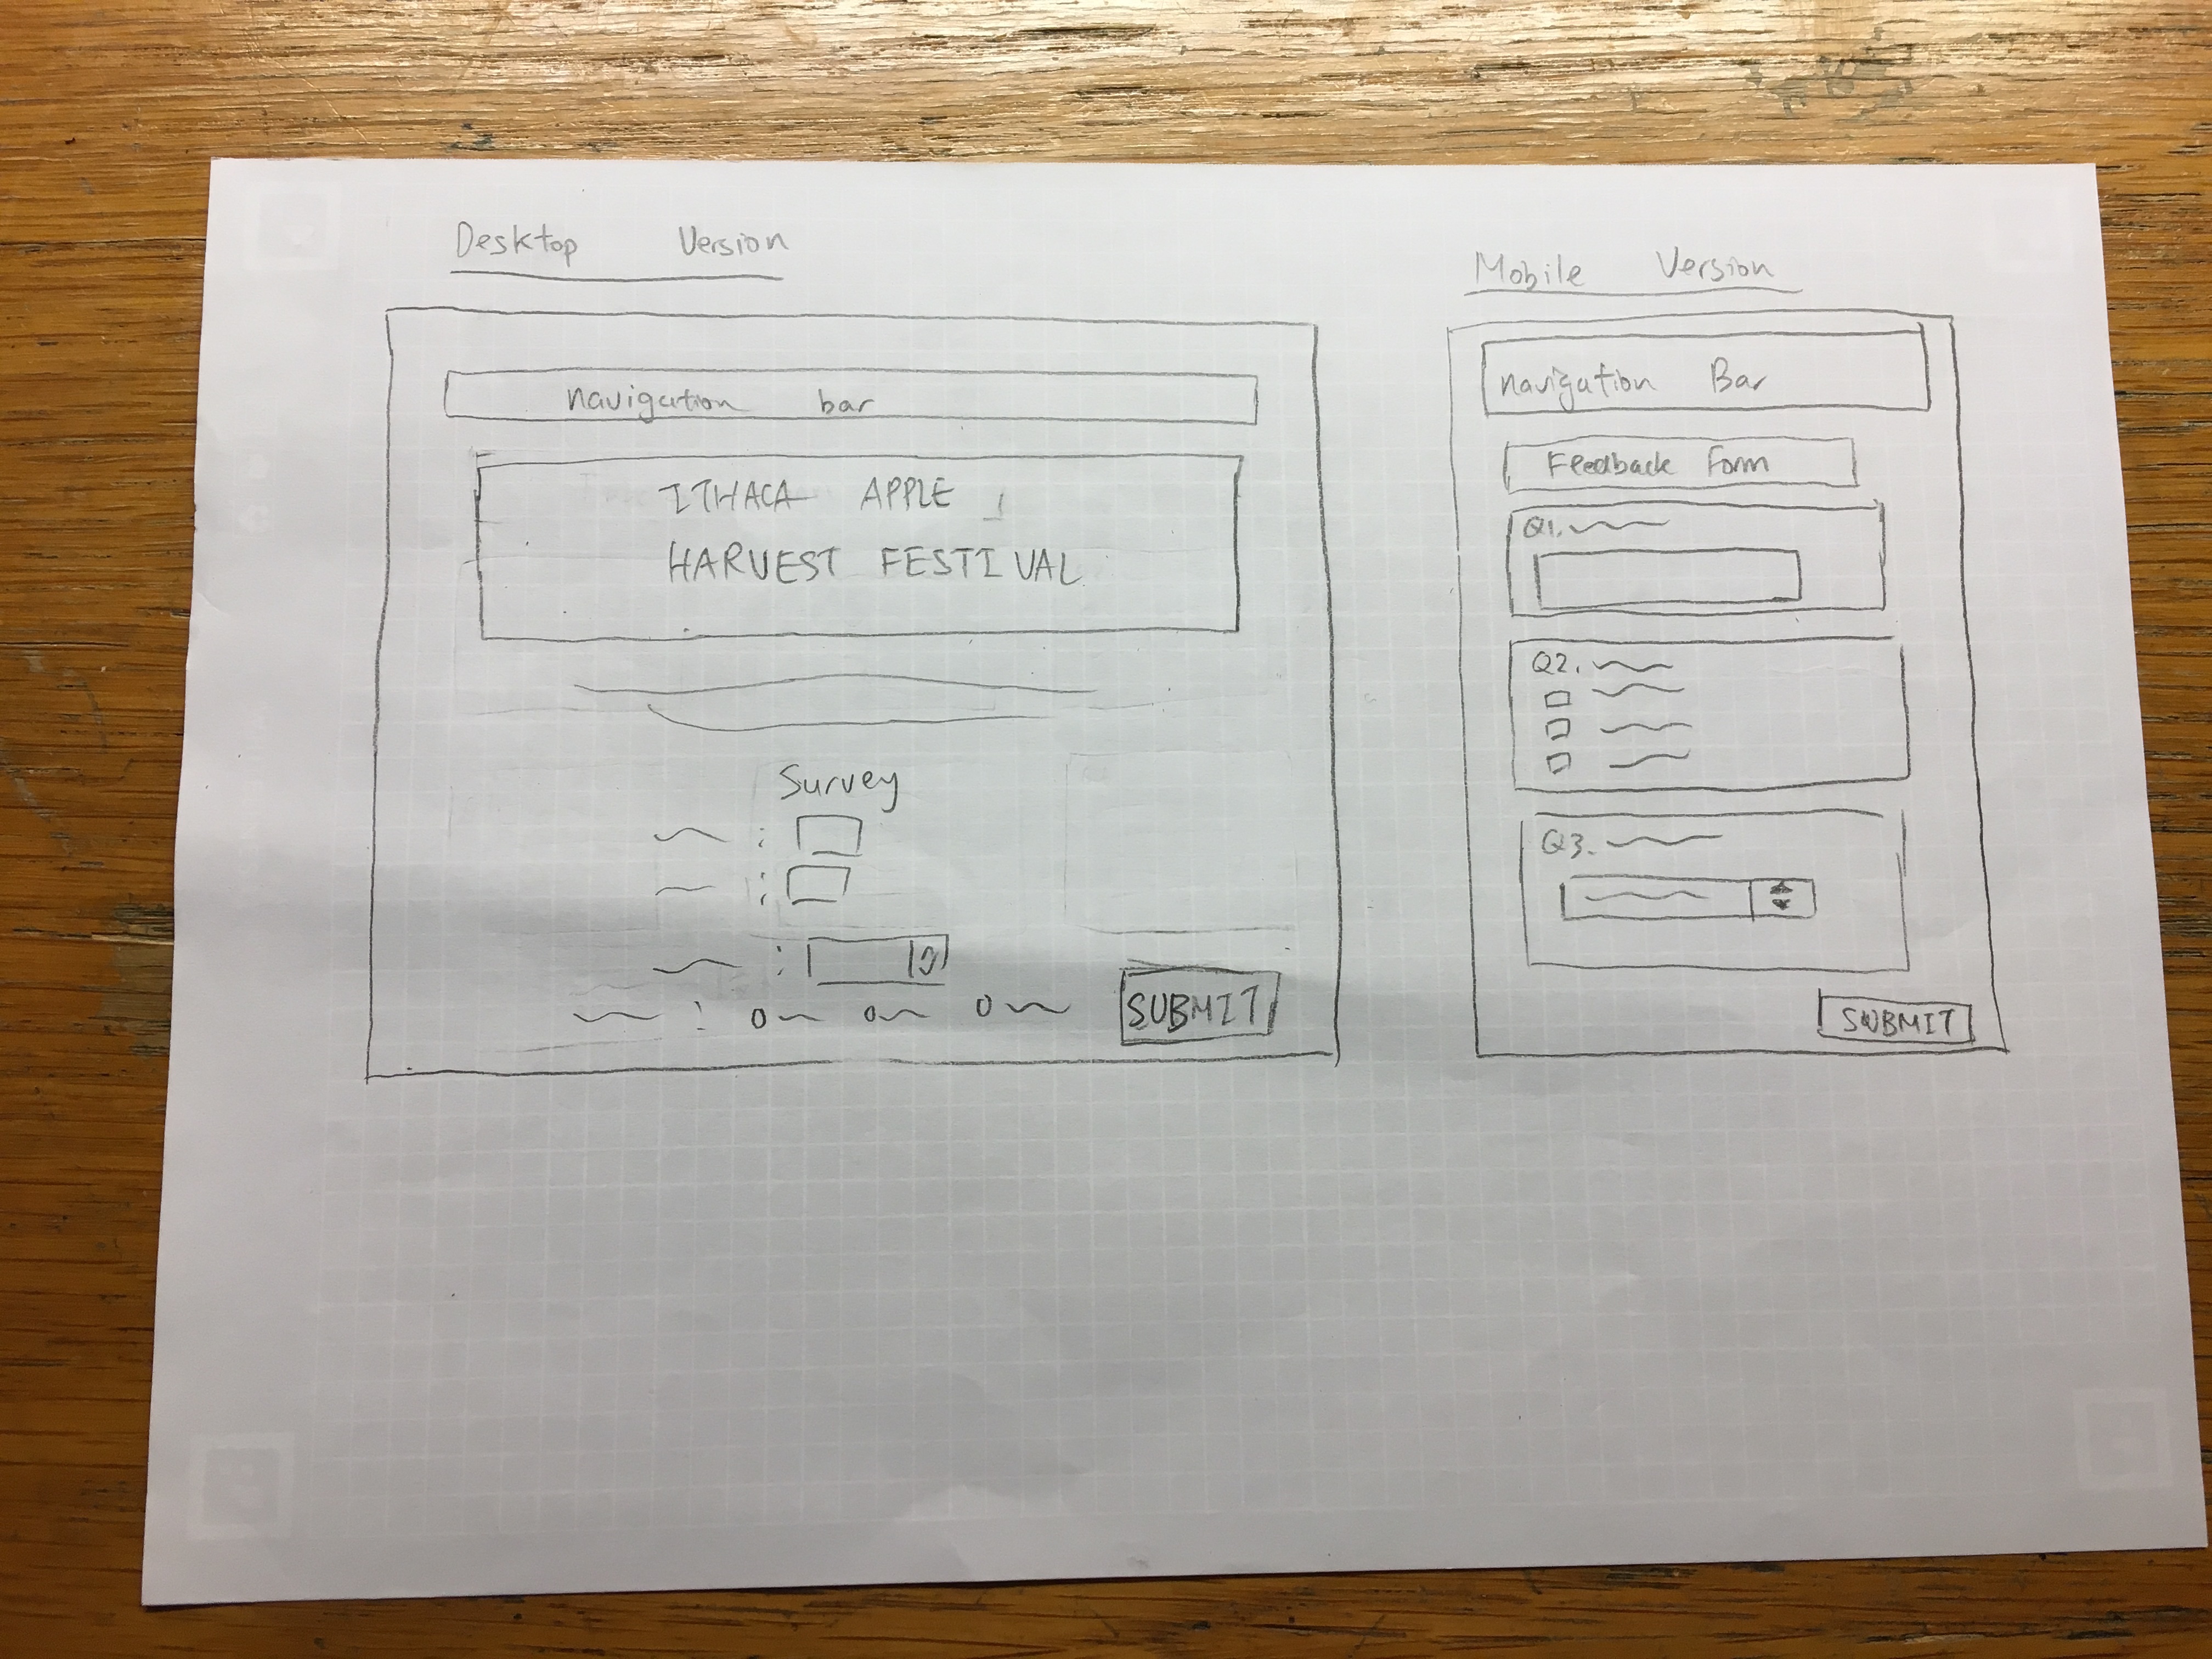 Desktop Version
navigation bar
ITHACA APPLE
HARVEST FESTIVAL
Survey
:
:
:
:
SUBMIT
Mobile Version
navigation Bar
Feedback Form
Q1.
Q2.
Q3.
SUBMIT